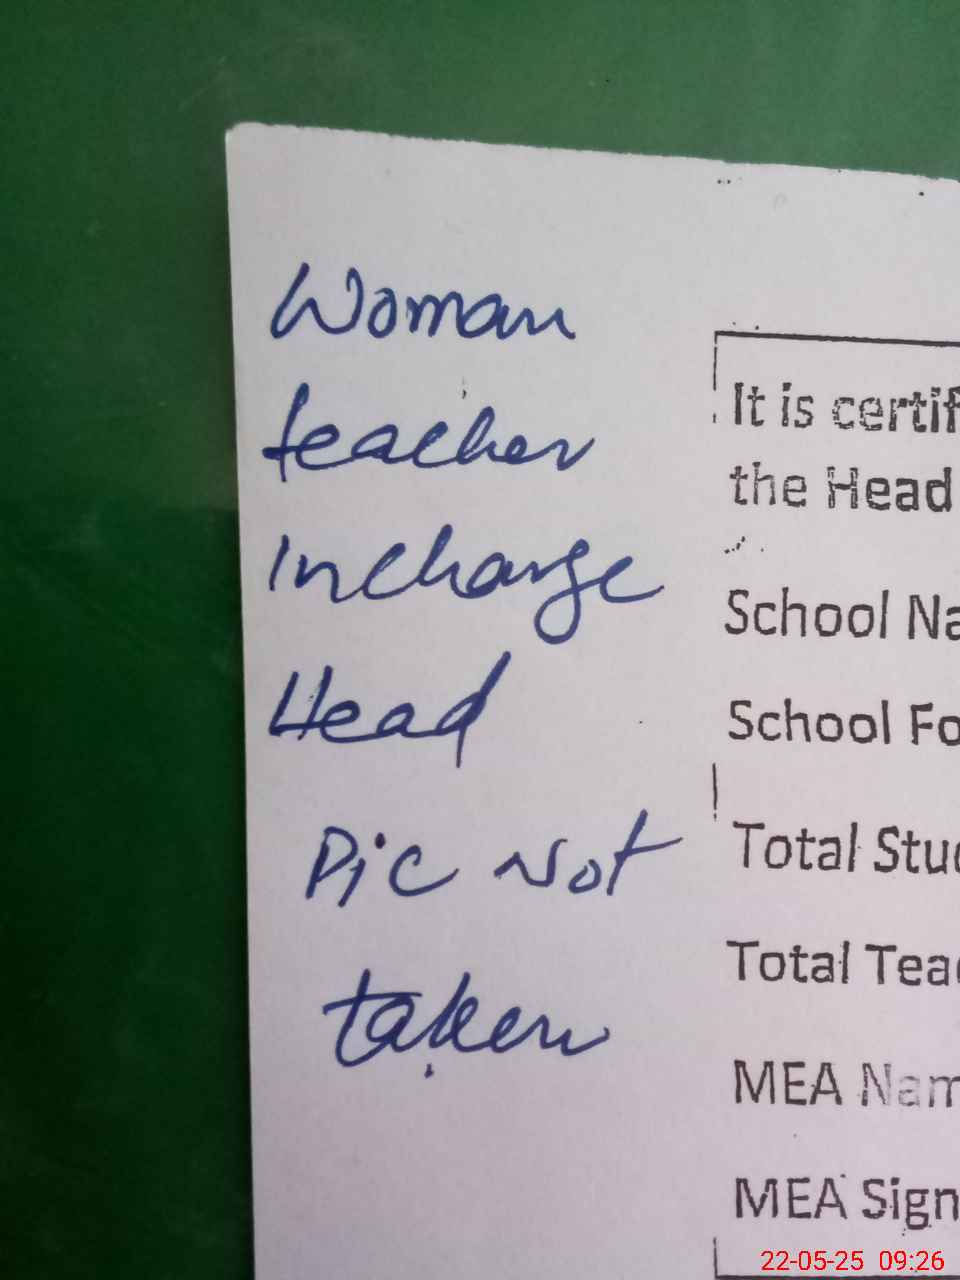 Woman
teacher
Incharge
Head
Pic Not
taken
It is certif
the Head
School Na
School Fo
Total Stud
Total Tea
MEA Nam
MEA Sign
22-05-25 09:26